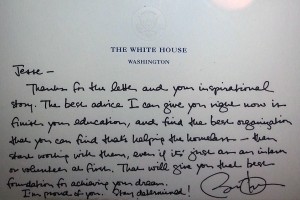 THE WHITE HOUSE
WASHINGTON
Jesse —
Thanks for the letter and your inspirational
story. The best advice I can give you right now is
finish your education, and find the best organization
that you can find that's helping the homeless — then
start working with them, even if it's just as an intern
or volunteer at first. That will give you the best
foundation for achieving your dream.
I'm proud of you. Stay determined!